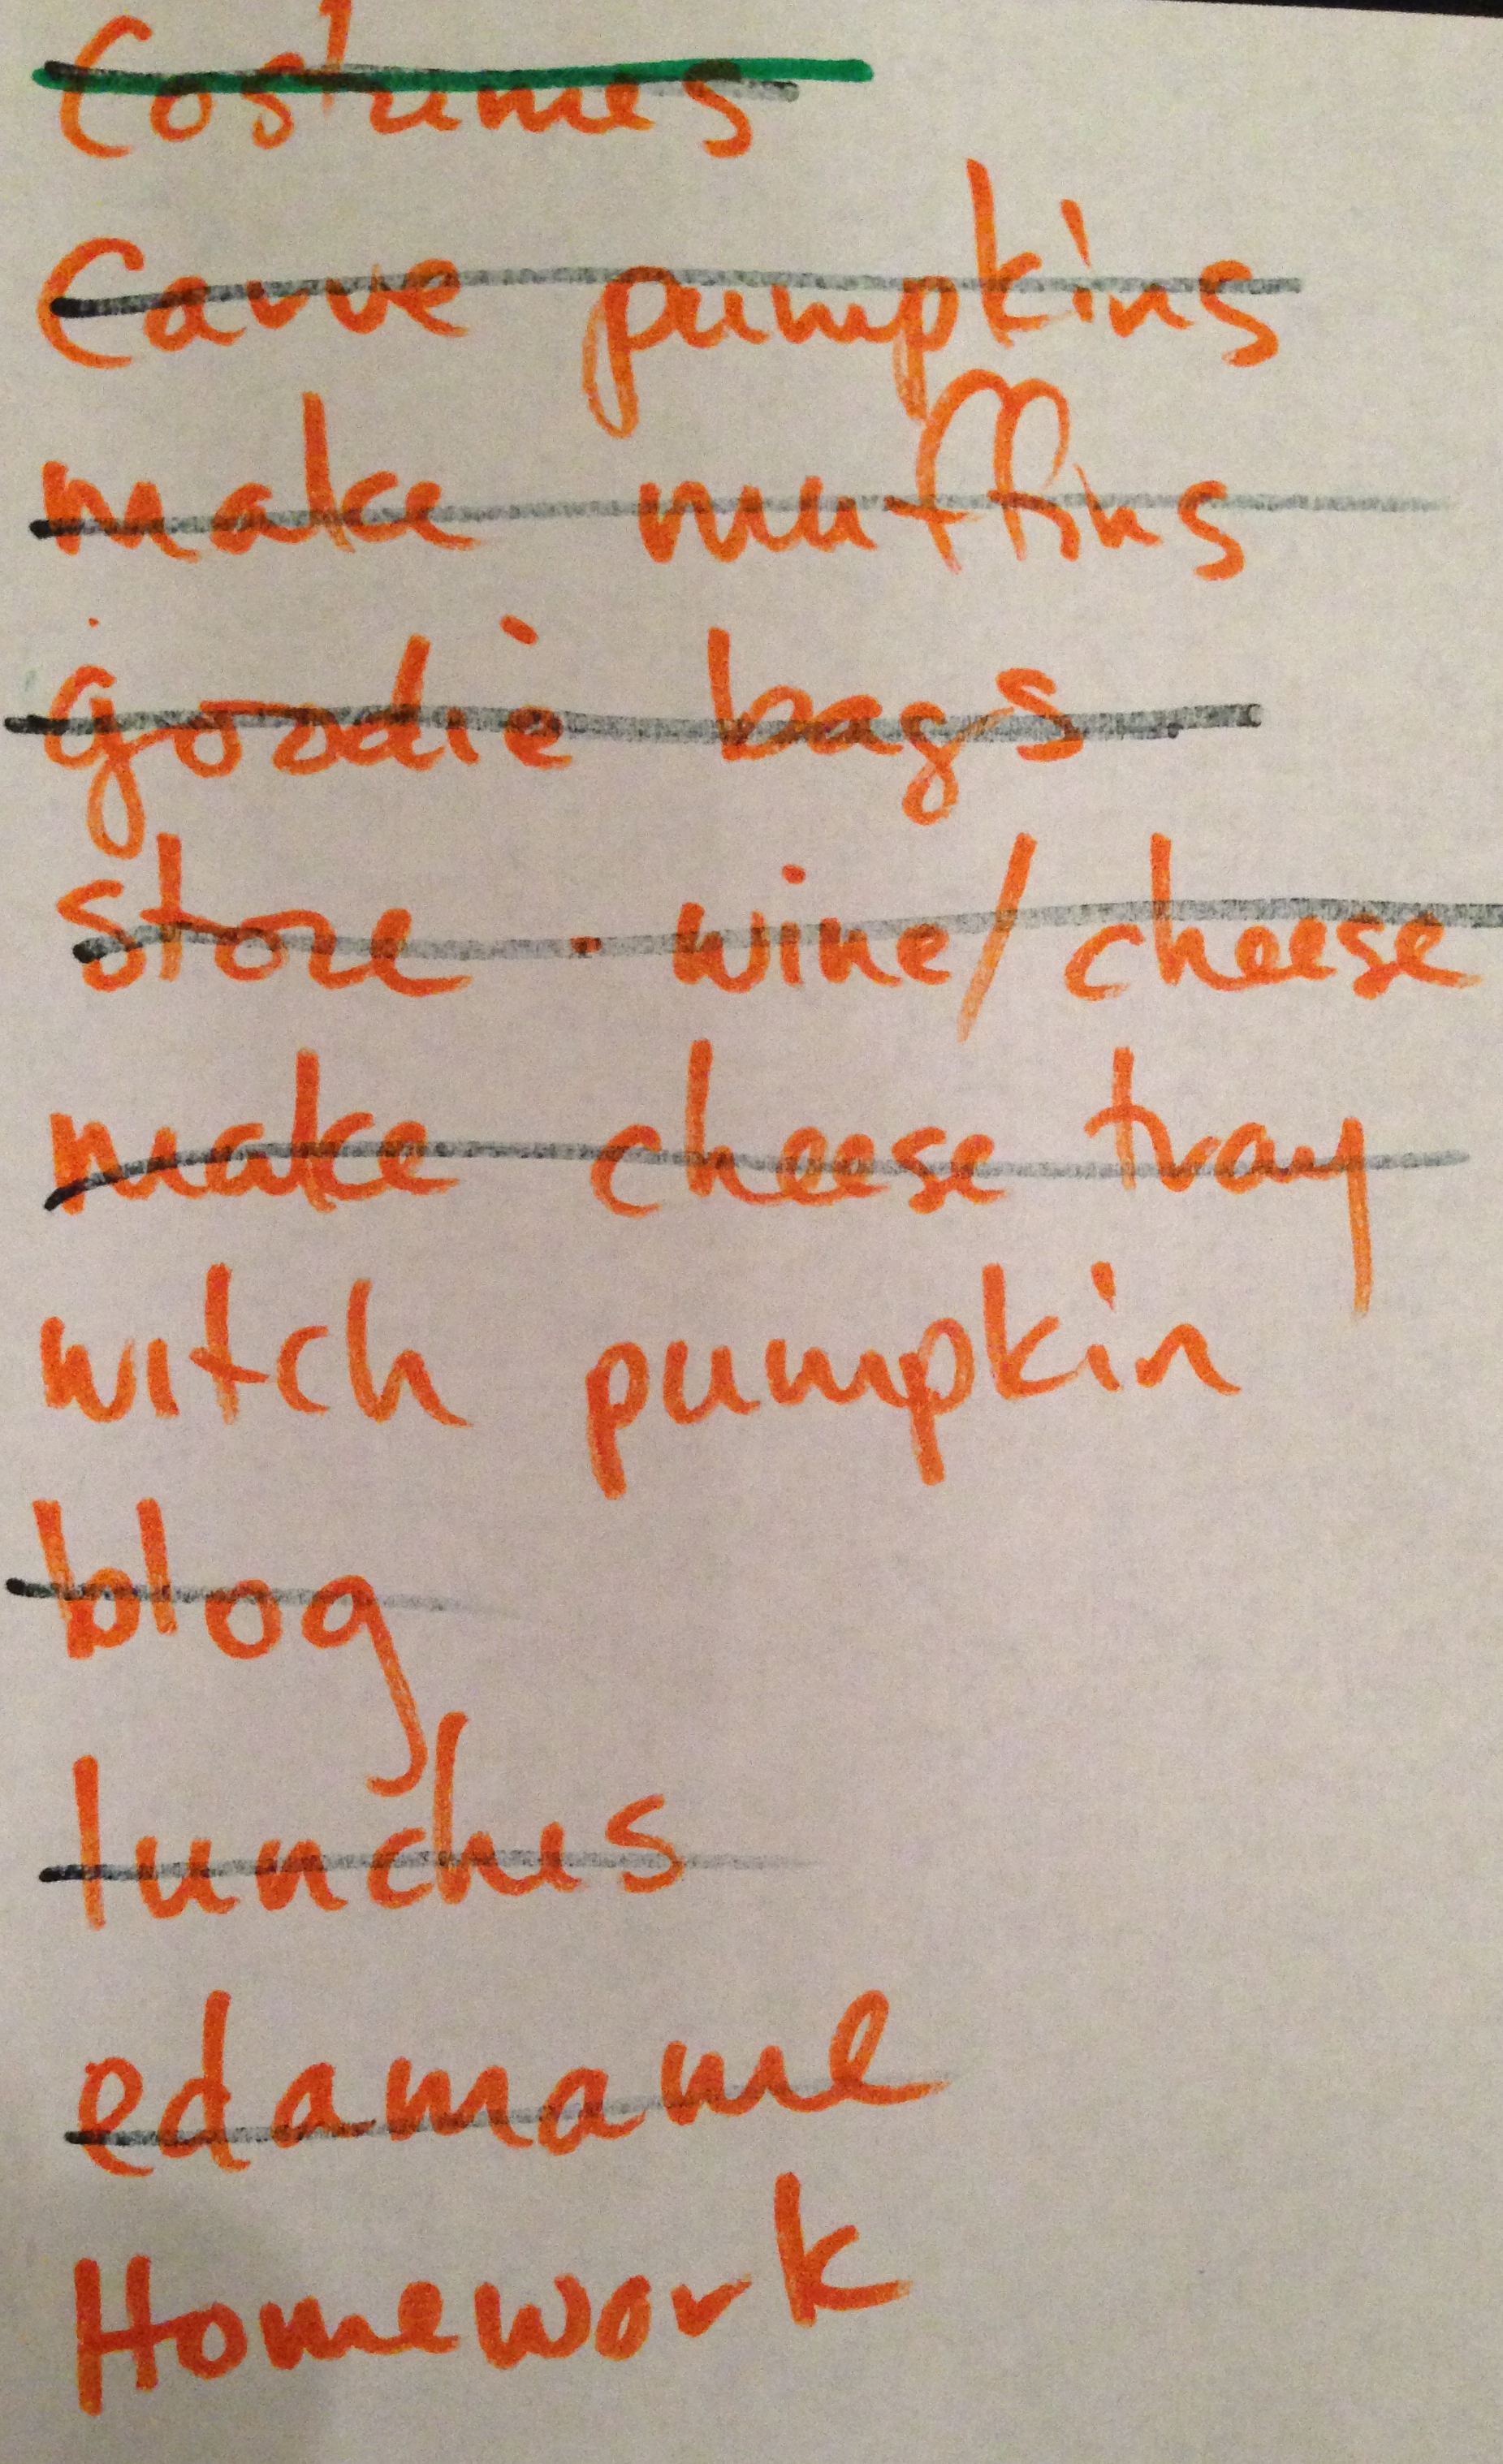 Costumes
Carve pumpkins
make muffins
goodie bags
store · wine/cheese
make cheese tray
witch pumpkin
blog
lunches
edamame
Homework